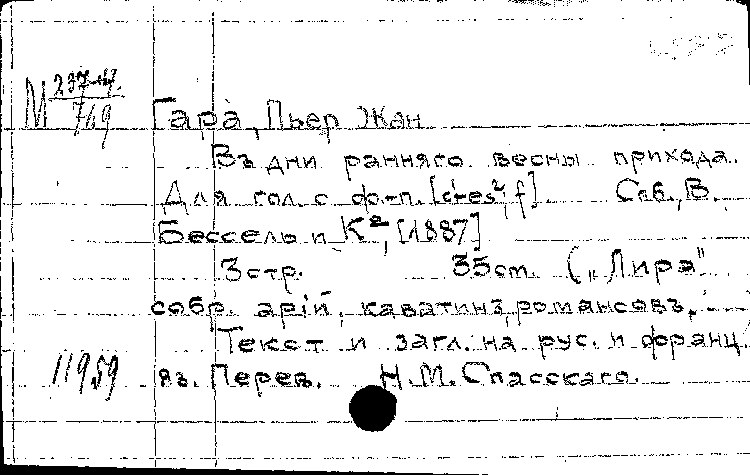 М 237-4.
7а9
Гара, Пьер Жан
Въ дни ранняго весны прихода.
Для гол. с фо-п. [d-es², f]. Спб., В.
Бессель и Кº, [1887]
3 стр. 35 ст. („Лира"
собр. арій, каватинъ, романсовъ, ---
Текст и загл. на рус. и франц.
11959 яз. Перев. Н. М. Спасскаго.